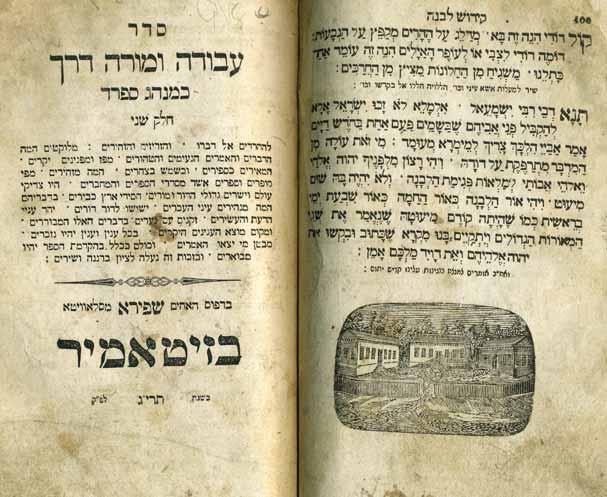 קידוש לבנה 400
קול דודי הנה זה בא׳ מדלג על ההרים מקפץ על הגבעות:
דומה דודי לצבי או לעופר האילים הנה זה עומד אחר
כתלנו׳ משגיח מן החלונות מציץ מן החרכים:
שיר למעלות אשא עיני וכו׳, הללויה הללו אל בקדשו וכו׳:
תנא דבי רבי ישמעאל׳ אלמלא לא זכו ישראל אלא
להקביל פני אביהם שבשמים פעם אחת בחדש דיים
אמר אביי הלכך צריך למימרא מעומד: מי זאת עולה מן
המדבר מתרפקת על דודה: ויהי רצון מלפניך יהוה אלהי
ואלהי אבותי למלאות פגימת הלבנה׳ ולא יהיה בה שום
מיעוט׳ ויהי אור הלבנה כאור החמה כאור שבעת ימי
בראשית כמו שהיתה קודם מיעוטה שנאמר את שני
המאורות הגדולים ויתקיים בנו מקרא שכתוב ובקשו את
יהוה אלהיהם ואת דויד מלכם אמן:
ואח״כ אומרים למנצח בנגינות עלינו קדיש יתום:
סדר
עבודה ומורה דרך
כמנהג ספרד
חלק שני
להחרדים אל דברו׳ והזריזים והזהירים׳ מלוקטים המה
הדברים והאמרים הנעימים והטהורים׳ מפז ומפנינים יקרים׳
המאירים כספירים׳ וכשמש בצהרים׳ המה מזהירים׳ מפי
סופרים וספרים אשר מסדרי הספרים והמחברים׳ היו צדיקי
עולם וישרים גדולי הדור ומורים הסידי ארץ כבירים׳ בדבריהם
המה מנהירים עיני העברים׳ וישישו לדור דורים׳ יהד עניי
הדעת והעשירים׳ זקנים עם נערים בדברים האלו המבוררים׳
ומקום מוצא הענינים היקרים׳ בכל ענין וענין יהיו נזכרים׳
מבטן מי יצאו האמרים׳ וכולם בכלל בהקדמת הספר יהיו
מבוארים׳ ובזכות זה נעלה לציון ברננה ושירים:
בדפוס האחים שפירא מסלאוויטא
בזיטאמיר
בשנת תריג לפ״ק